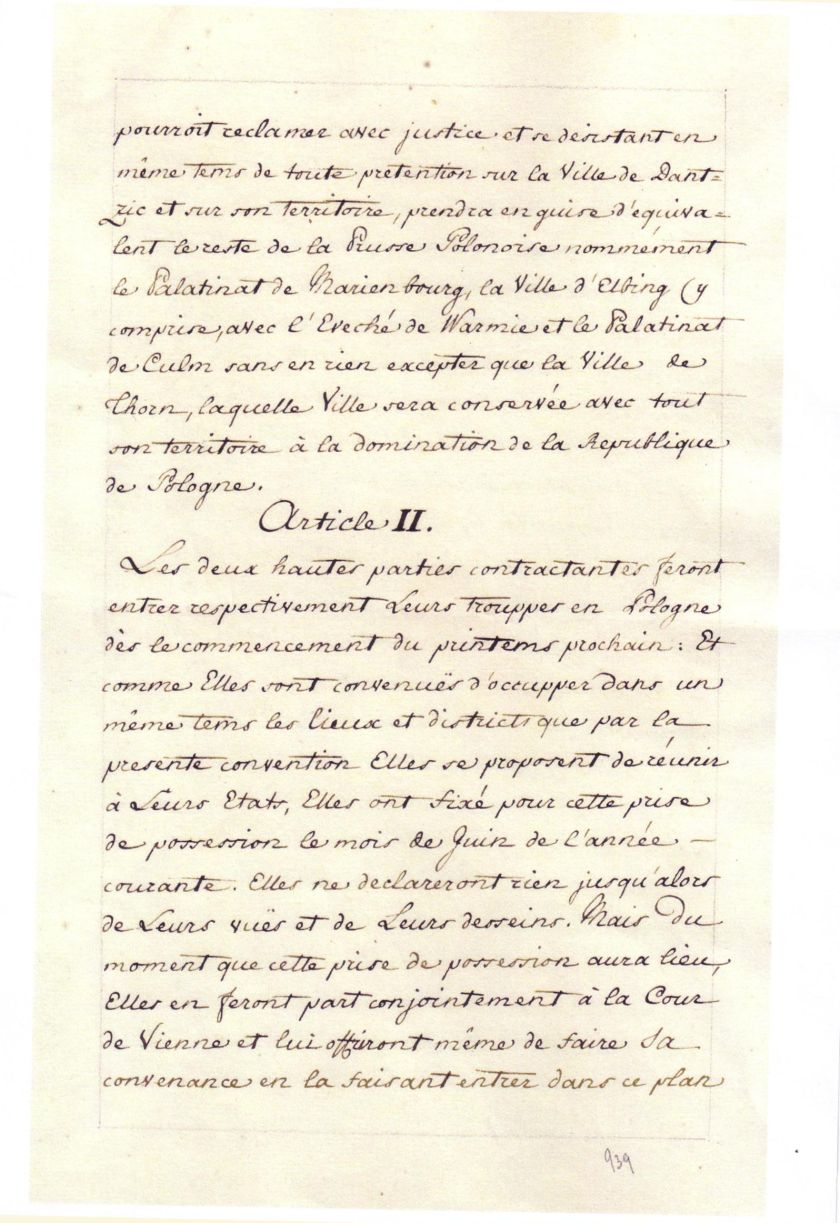 pourroit reclamer avec justice et se desistant en
même tems de toute pretention sur la Ville de Dant=
zic et sur son territoire, prendra en guise d'equiva=
lent le reste de la Prusse Polonoise nommément
le Palatinat de Marienbourg, la Ville d'Elbing (y
comprise, avec l'Eveché de Warmie et le Palatinat
de Culm sans en rien excepter que la Ville de
Thorn, laquelle Ville sera conservée avec tout
son territoire à la domination de la Republique
de Pologne.
Article II.
Les deux hautes parties contractantes feront
entrer respectivement Leurs trouppes en Pologne
dès le commencement du printems prochain: Et
comme Elles sont convenuës d'occupper dans un
même tems les lieux et districts que par la
presente convention Elles se proposent de réunir
à Leurs Etats, Elles ont fixé pour cette prise
de possession le mois de Juin de l'année —
courante. Elles ne declareront rien jusqu'alors
de Leurs vuës et de Leurs desseins. Mais du
moment que cette prise de possession aura lieu,
Elles en feront part conjointement à la Cour
de Vienne et lui offriront même de faire Sa
convenance en la faisant entrer dans ce plan
939